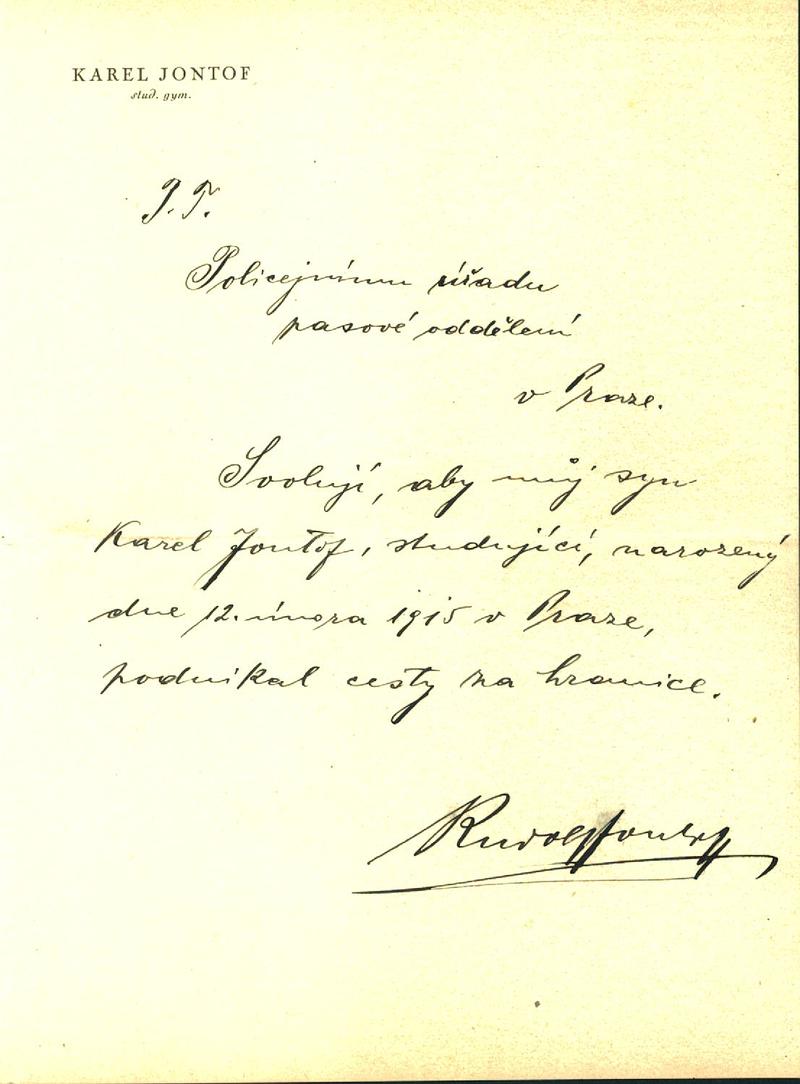 KAREL JONTOF
stud. gym.
P. T.
Policejnímu úřadu
pasové oddělení
v Praze.
Svoluji, aby můj syn
Karel Jontof, studující, narozený
dne 12. února 1915 v Praze,
podnikal cesty za hranice.
Rudolf Jontof